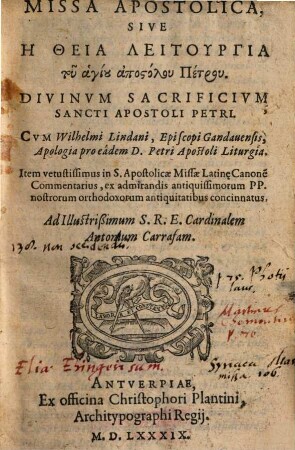 MISSA APOSTOLICA,
SIVE
Η ΘΕΙΑ ΛΕΙΤΟΥΡΓΙΑ
τοῦ ἁγίου ἀποστόλου Πέτρου.
DIVINVM SACRIFICIVM
SANCTI APOSTOLI PETRI.
CVM Wilhelmi Lindani, Episcopi Gandauensis,
Apologia pro eádem D. Petri Apostoli Liturgia.
Item vetustissimus in S. Apostolicæ Missæ Latinę Canonē
Commentarius, ex admirandis antiquissimorum PP.
nostrorum orthodoxorum antiquitatibus concinnatus.
Ad Illustrißimum S. R. E. Cardinalem
Antonium Carrafam.
ANTVERPIAE,
Ex officina Christophori Plantini,
Architypographi Regij.
M. D. LXXXIX.